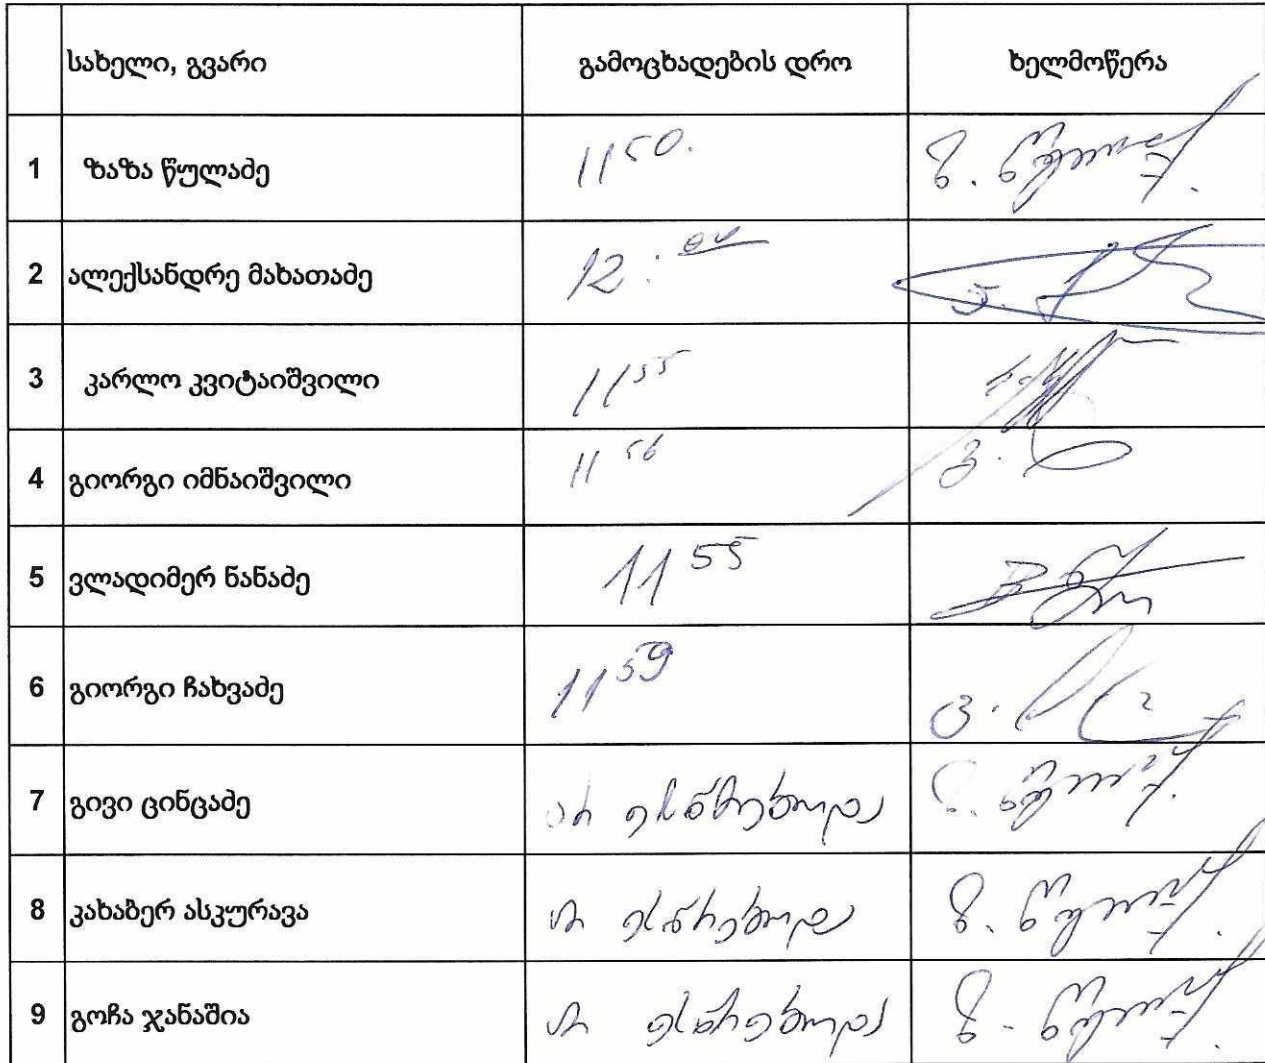 სახელი, გვარი გამოცხადების დრო ხელმოწერა
1 ზაზა წულაძე 11 50. ზ. წულაძე
2 ალექსანდრე მახათაძე 12:00
3 კარლო კვიტაიშვილი 11 55
4 გიორგი იმნაიშვილი 11 56
5 ვლადიმერ ნანაძე 11 55
6 გიორგი ჩახვაძე 11 59
7 გივი ცინცაძე არ ესწრებოდა ზ. წულაძე
8 კახაბერ ასკურავა არ ესწრებოდა ზ. წულაძე
9 გოჩა ჯანაშია არ ესწრებოდა ზ. წულაძე